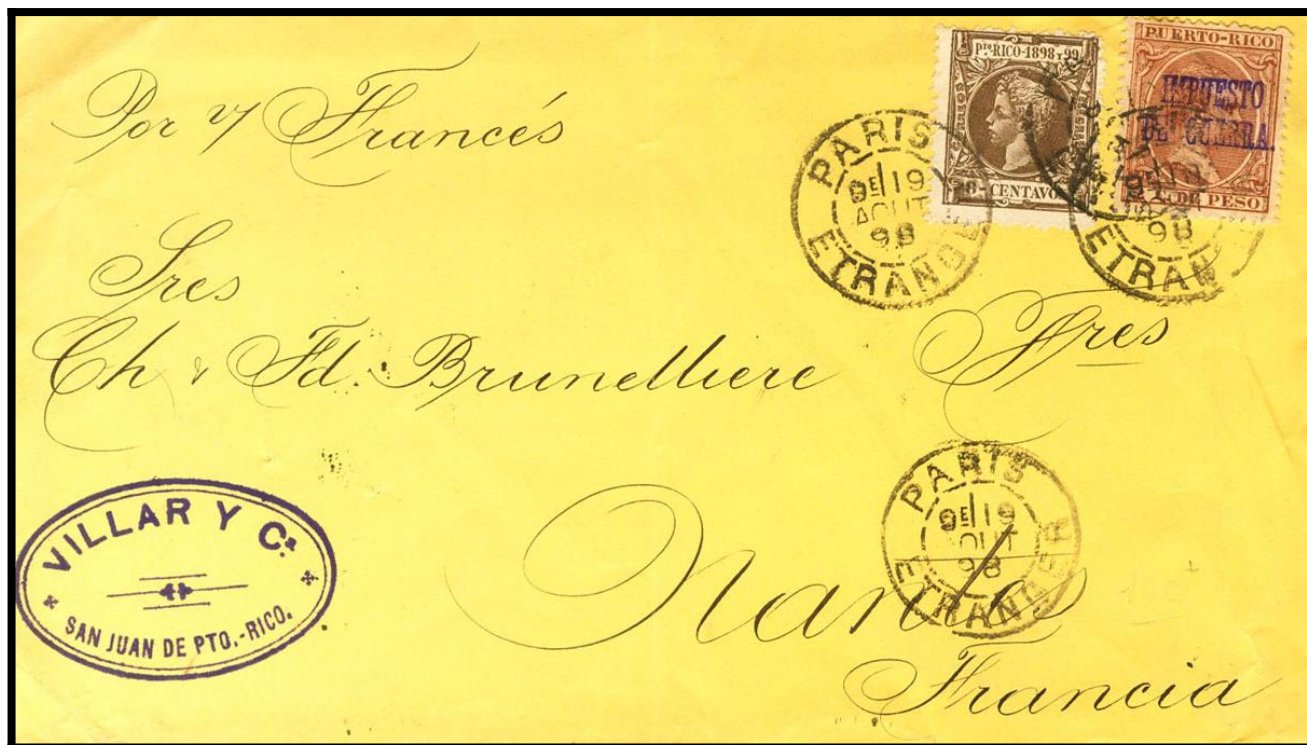 Por v/ Francés
Pto RICO-1898 y 99
8-CENTAVOS
PUERTO-RICO
IMPUESTO
DE GUERRA.
DE PESO
PARIS
9E 19
AOUT
98
ETRANGER
PARIS
98
ETRANGER
Sres
Ch & Fd. Brunelliere Fres
PARIS
9E 19
AOUT
98
ETRANGER
Nantes
Francia
VILLAR Y Ca.
SAN JUAN DE PTO.-RICO.